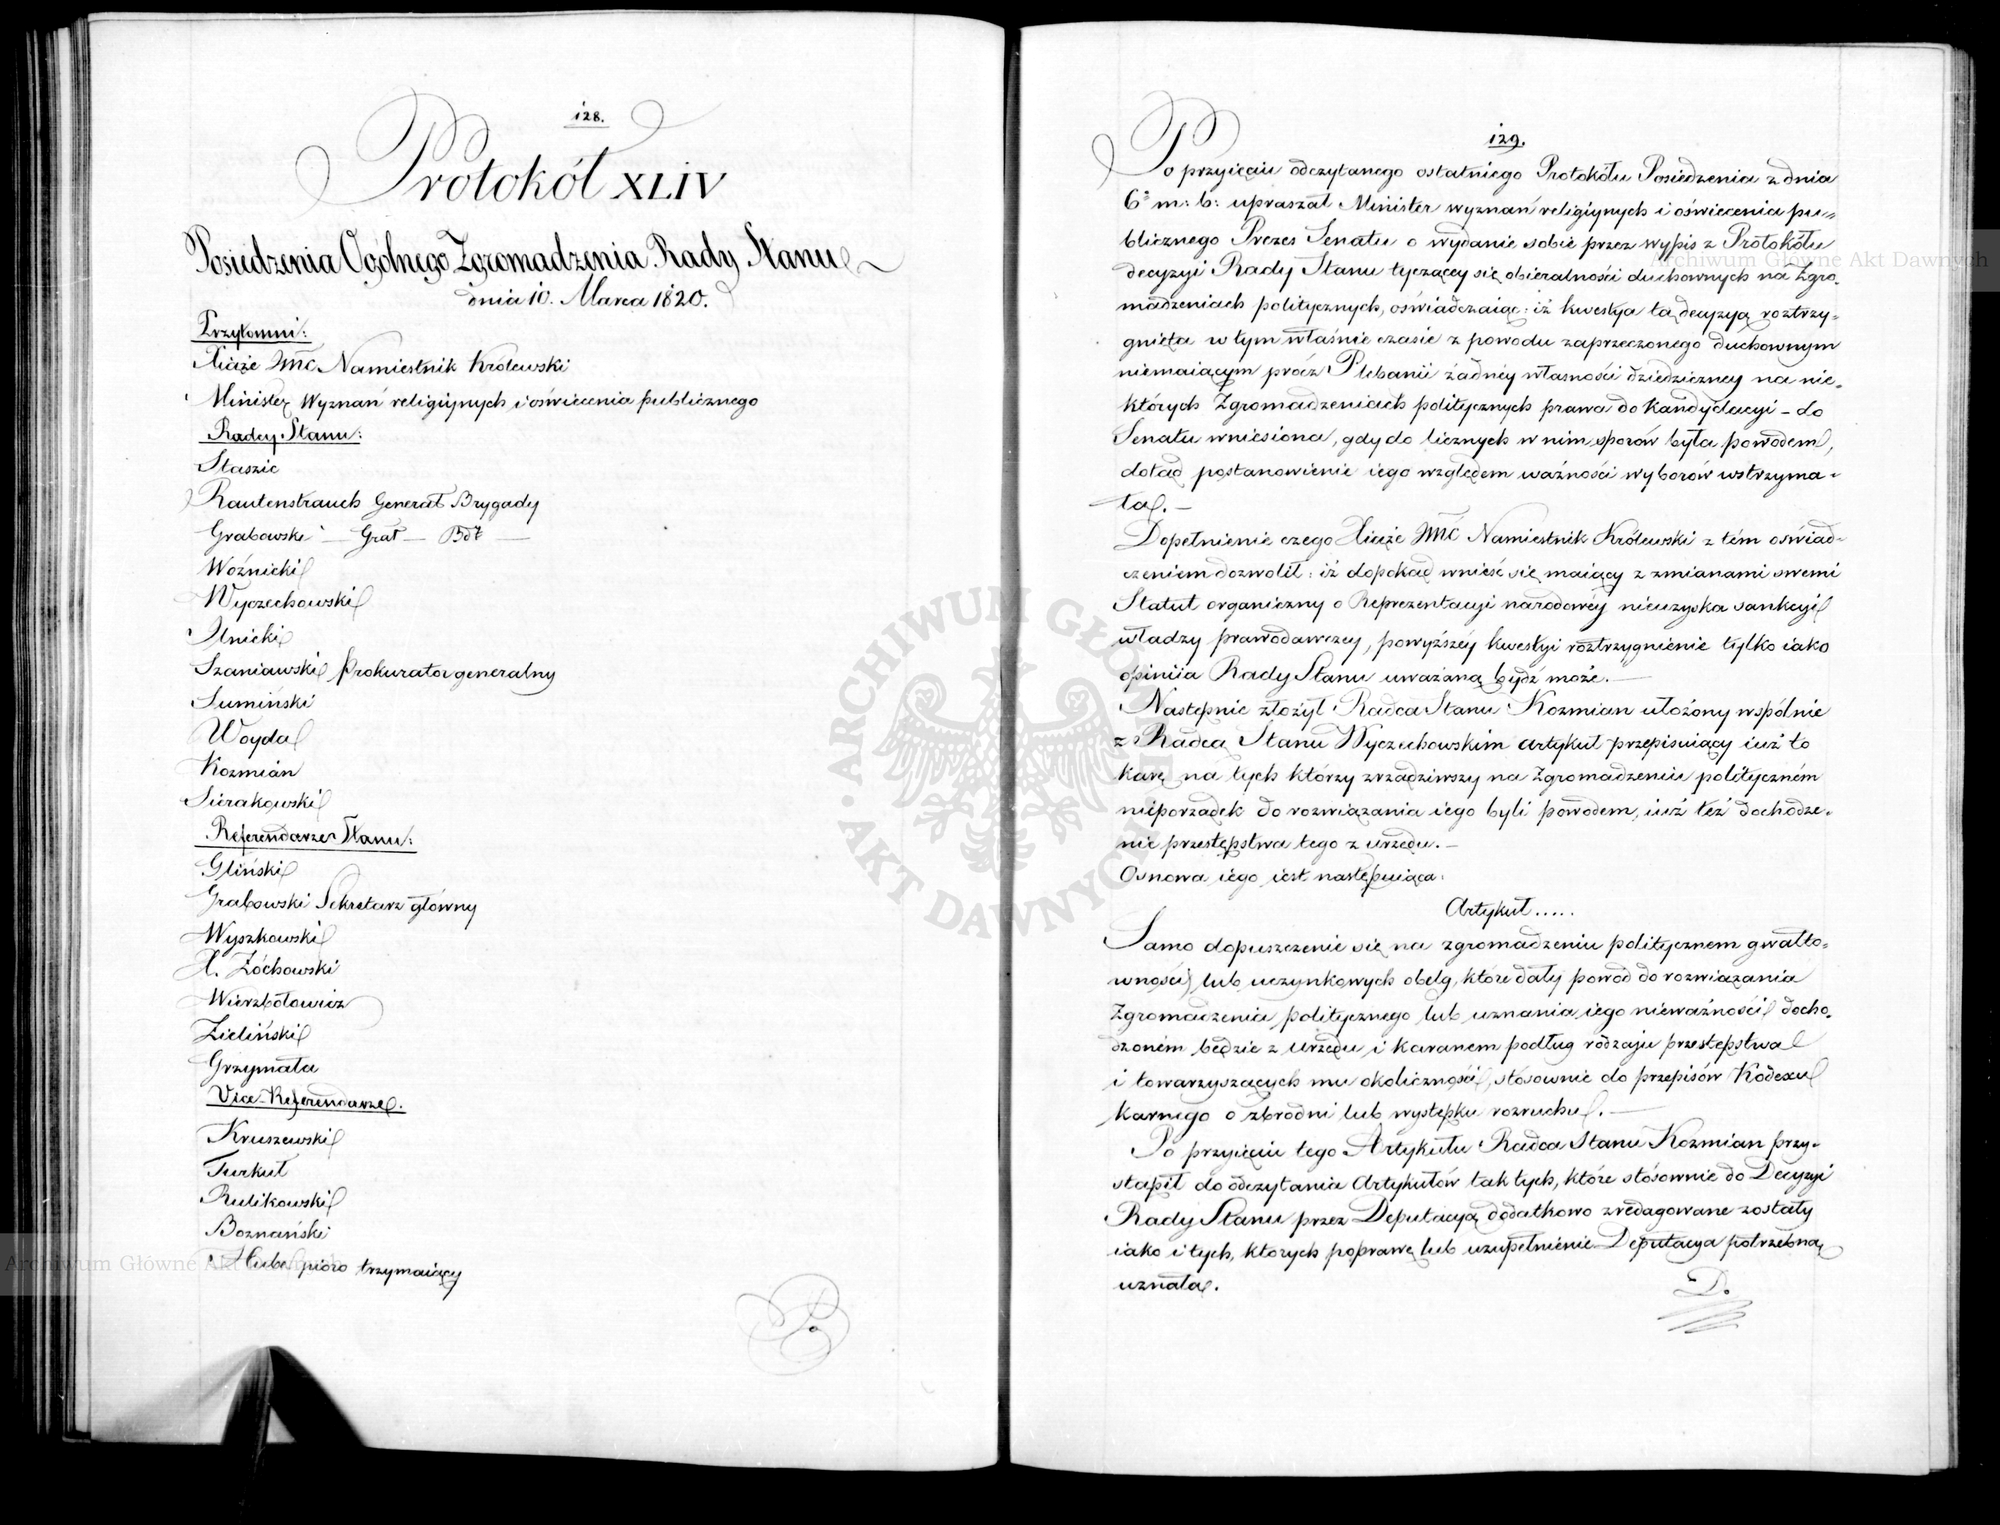 128.
Protokół XLIV
Posiedzenia Ogólnego Zgromadzenia Rady Stanu
dnia 10. Marca 1820.
Przytomni:
Xiąże JMC Namiestnik Królewski
Minister Wyznań religiynych i oświecenia publicznego
Radcy Stanu:
Staszic
Rautenstrauch Generał Brygady
Grabowski — Grał — Bdy —
Woźnicki
Wyczechowski
Ilnicki
Szaniawski Prokurator generalny
Sumiński
Woyda
Kozmian
Sierakowski
Referendarze Stanu:
Gliński
Grabowski Sekretarz główny
Wyszkowski
X. Żóchowski
Wierzbołowicz
Zieliński
Grzymała
Vice-Referendarze.
Kruszewski
Turkuł
Rulikowski
Boznański
Hube pióro trzymaiący
129.
Po przyięciu odczytanego ostatniego Protokółu Posiedzenia z dnia
6º m: b: upraszał Minister wyznań religiynych i oświecenia pu-
blicznego Prezes Senatu o wydanie sobie przez wypis z Protokółu
decyzyi Rady Stanu tyczącey się obieralności duchownych na Zgro-
madzeniach politycznych, oświadczaiąc: iż kwestya ta decyzyą roztrzy-
gnięta w tym właśnie czasie z powodu zaprzeczonego duchownym
niemaiącym prócz Plebanii żadney własności dziedziczney na nie-
których Zgromadzeniach politycznych prawa do Kandydacyi do
Senatu wniesiona, gdy do licznych w nim sporów była powodem,
dotąd postanowienie iego względem ważności wyborów wstrzyma-
ła. —
Dopełnienie czego Xiąże JMC Namiestnik Królewski z tém oświad-
czeniem dozwolił: iż dopokąd wnieść się maiący z zmianami swemi
Statut organiczny o Reprezentacyi narodowéy nieuzyska sankcyi
władzy prawodawczey, powyższéy kwestyi roztrzygnienie tylko iako
opiniia Rady Stanu uważaną bydź może. —
Następnie złożył Radca Stanu Kozmian ułożony wspólnie
z Radcą Stanu Wyczechowskim artykuł przepisuiący iuż to
karę na tych którzy zrządziwszy na Zgromadzeniu polityczném
nieporządek do rozwiązania iego byli powodem, iuż też dochodze-
nie przestępstwa tego z urzędu. —
Osnowa iego iest następuiąca:
Artykuł.....
Samo dopuszczenie się na zgromadzeniu politycznem gwałto-
wności lub uczynkowych obelg, które dały powód do rozwiązania
Zgromadzenia politycznego lub uznania iego nieważności docho-
dzoném będzie z urzędu i karanem podług rodzaju przestępstwa
i towarzyszących mu okoliczności, stósownie do przepisów Kodexu
karnego o zbrodni lub występku rozruchu. —
Po przyięciu tego Artykułu Radca Stanu Kozmian przy-
stąpił do odczytania Artykułów tak tych, które stósownie do Decyzyi
Rady Stanu przez Deputacyą dodatkowo zredagowane zostały
iako i tych, których poprawę lub uzupełnienie Deputacya potrzebną
uznała.
D.
ARCHIWUM GŁÓWNE
AKT DAWNYCH
Archiwum Główne Akt Dawnych
Archiwum Główne Akt Dawnych